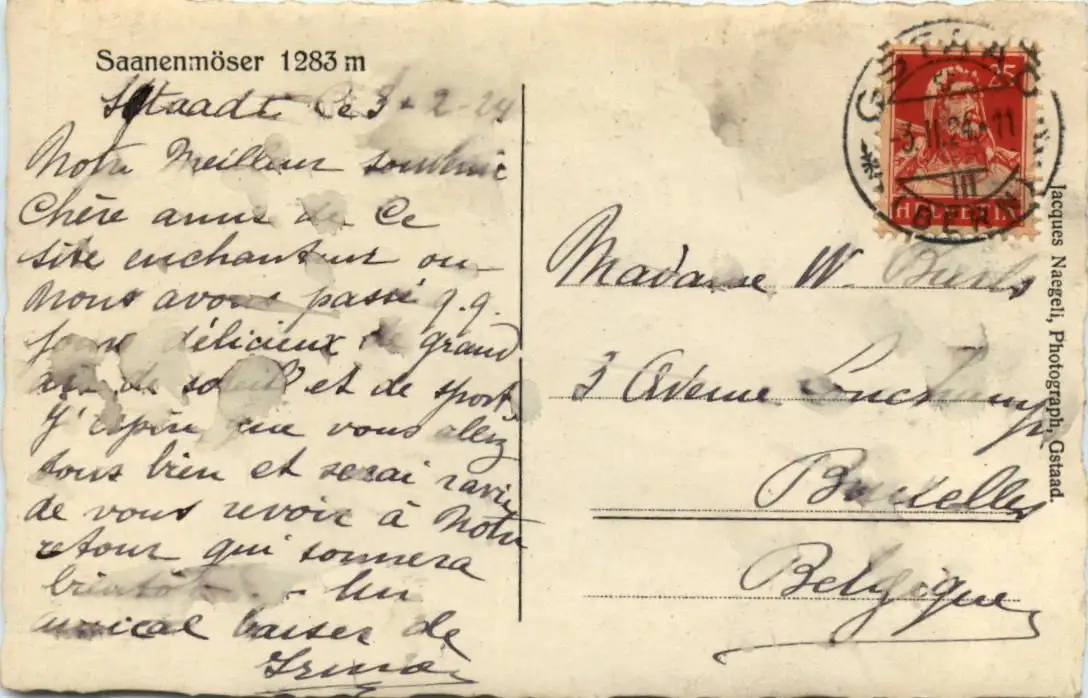 Saanenmöser 1283 m
Gstaadt Ce 3-2-24
Notre Meilleur souvenir
Chère amie de Ce
site enchanteur ou
nous avons passé q.q.
jours délicieux de grand
air de soleil et de sports
J'espère que vous allez
tous bien et serai ravie
de vous revoir à Notre
retour qui sonnera
bientôt. Un
amical baiser de
Irma
GSTAAD
3.II.24 11
III
BERN
25
HELVETIA
Madame W.
3 Avenue Longchamp
Bruxelles
Belgique
Jacques Naegeli, Photograph, Gstaad.